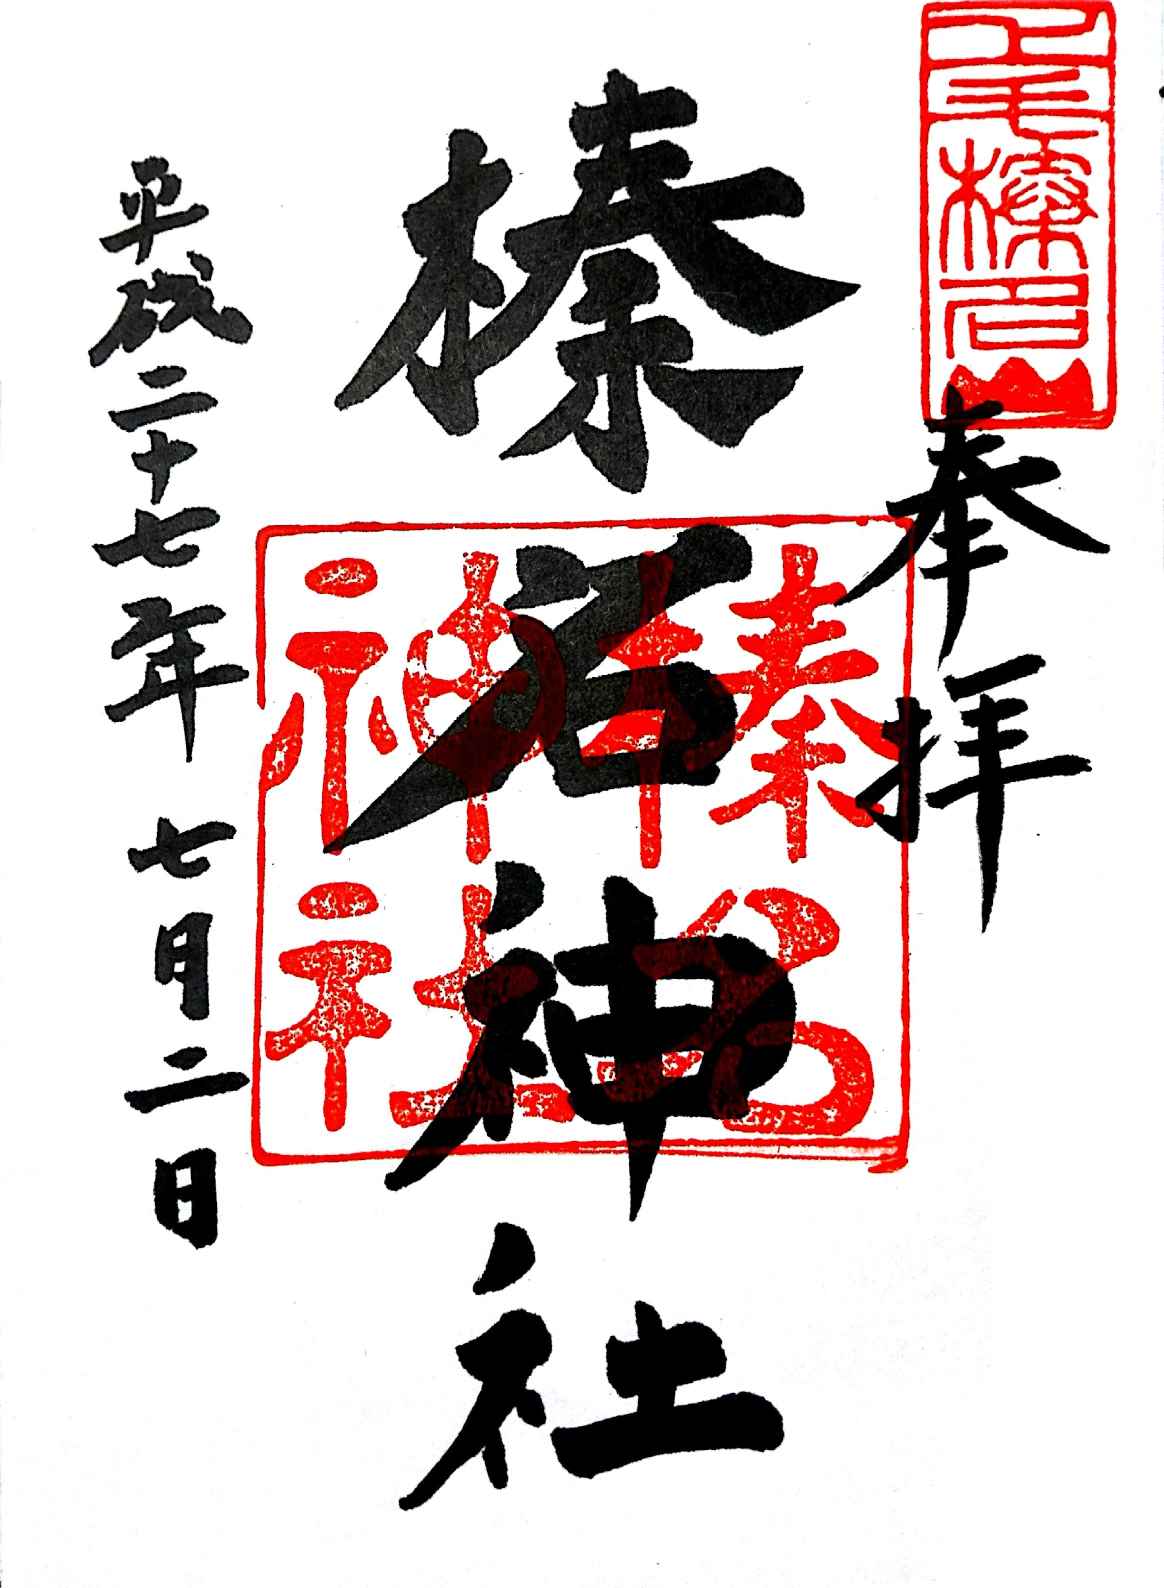 上毛榛名山
奉拝
榛名神社
榛名神社
平成二十七年七月二日